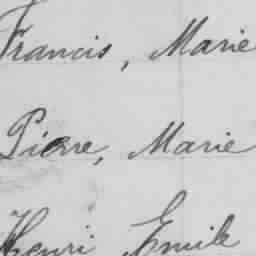 Francis, Marie
Pierre, Marie
Henri Emile